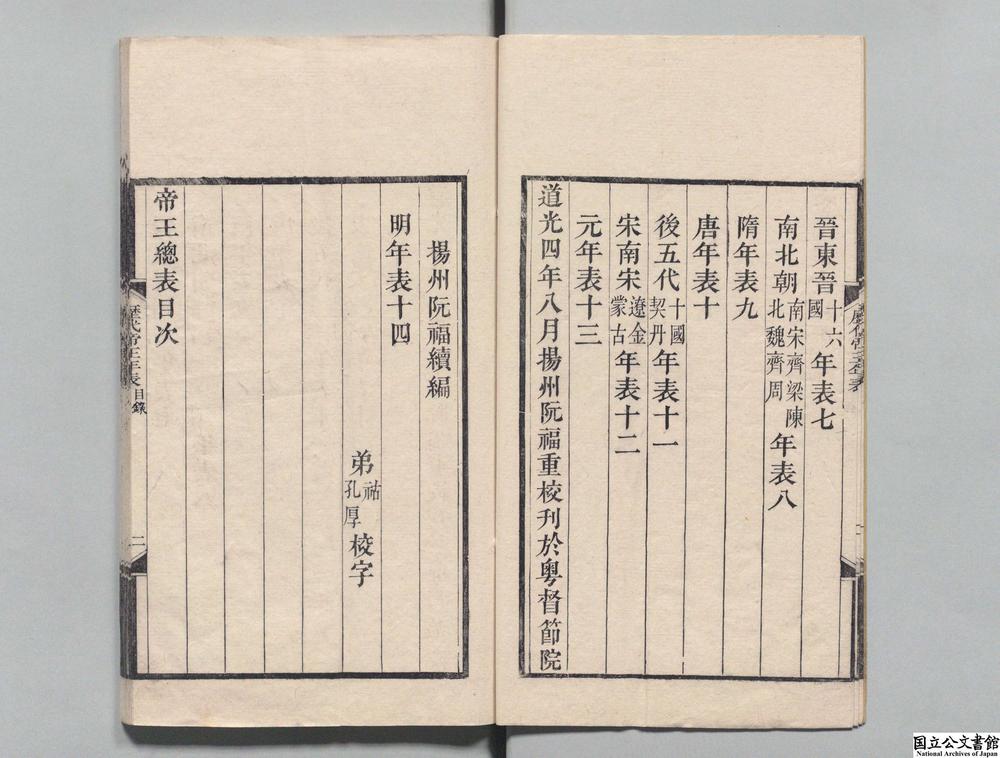 晉東晉十六國年表七
南北朝南宋齊梁陳北魏齊周年表八
隋年表九
唐年表十
後五代十國契丹年表十一
宋南宋遼金蒙古年表十二
元年表十三
道光四年八月揚州阮福重校刊於粤督節院
揚州阮福續編
明年表十四
弟祜孔厚校字
帝王總表目次
歷代帝王年表 目錄
二
国立公文書館
National Archives of Japan